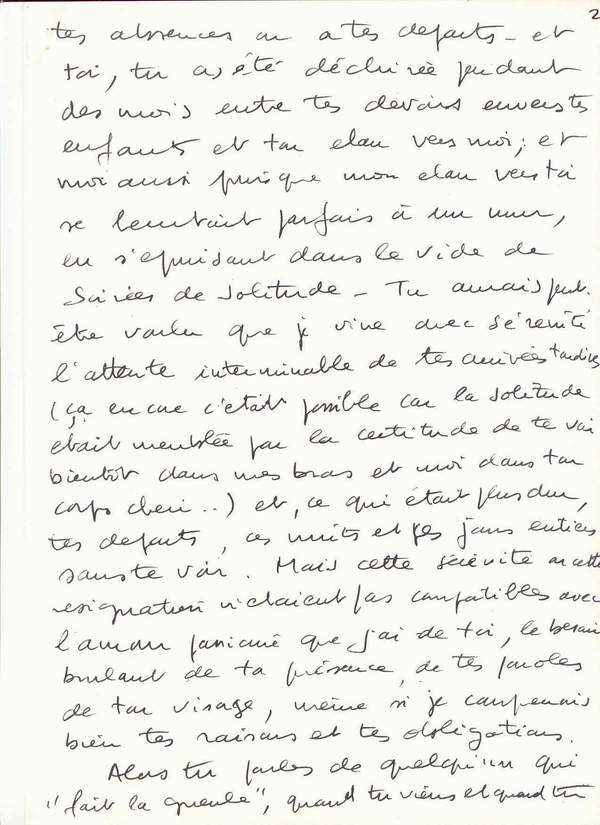 2
tes absences ou a tes departs - et
toi, tu as été déchirée pendant
des mois entre tes devoirs envers tes
enfants et ton elan vers moi; et
moi aussi puisque mon elan vers toi
se heurtait parfois à un mur,
en s'epuisant dans le vide de
Soirées de solitude - Tu aurais peut.
être voulu que je vive avec sérénité
l'attente interminable de tes arrivées tardives
(ça encore c'était possible car la solitude
etait meublée par la certitude de te voir
bientôt dans mes bras et moi dans ton
corps cheri..) et, ce qui était plus dur,
tes departs, ces nuits et ces jours entiers
sans te voir. Mais cette sérénité ou cette
resignation n'étaient pas compatibles avec
l'amour passionné que j'ai de toi, le besoin
brulant de ta présence, de tes paroles
de ton visage, même si je comprenais
bien tes raisons et tes obligations.
Alors tu parles de quelqu'un qui
"fait la gueule", quand tu viens et quand tu